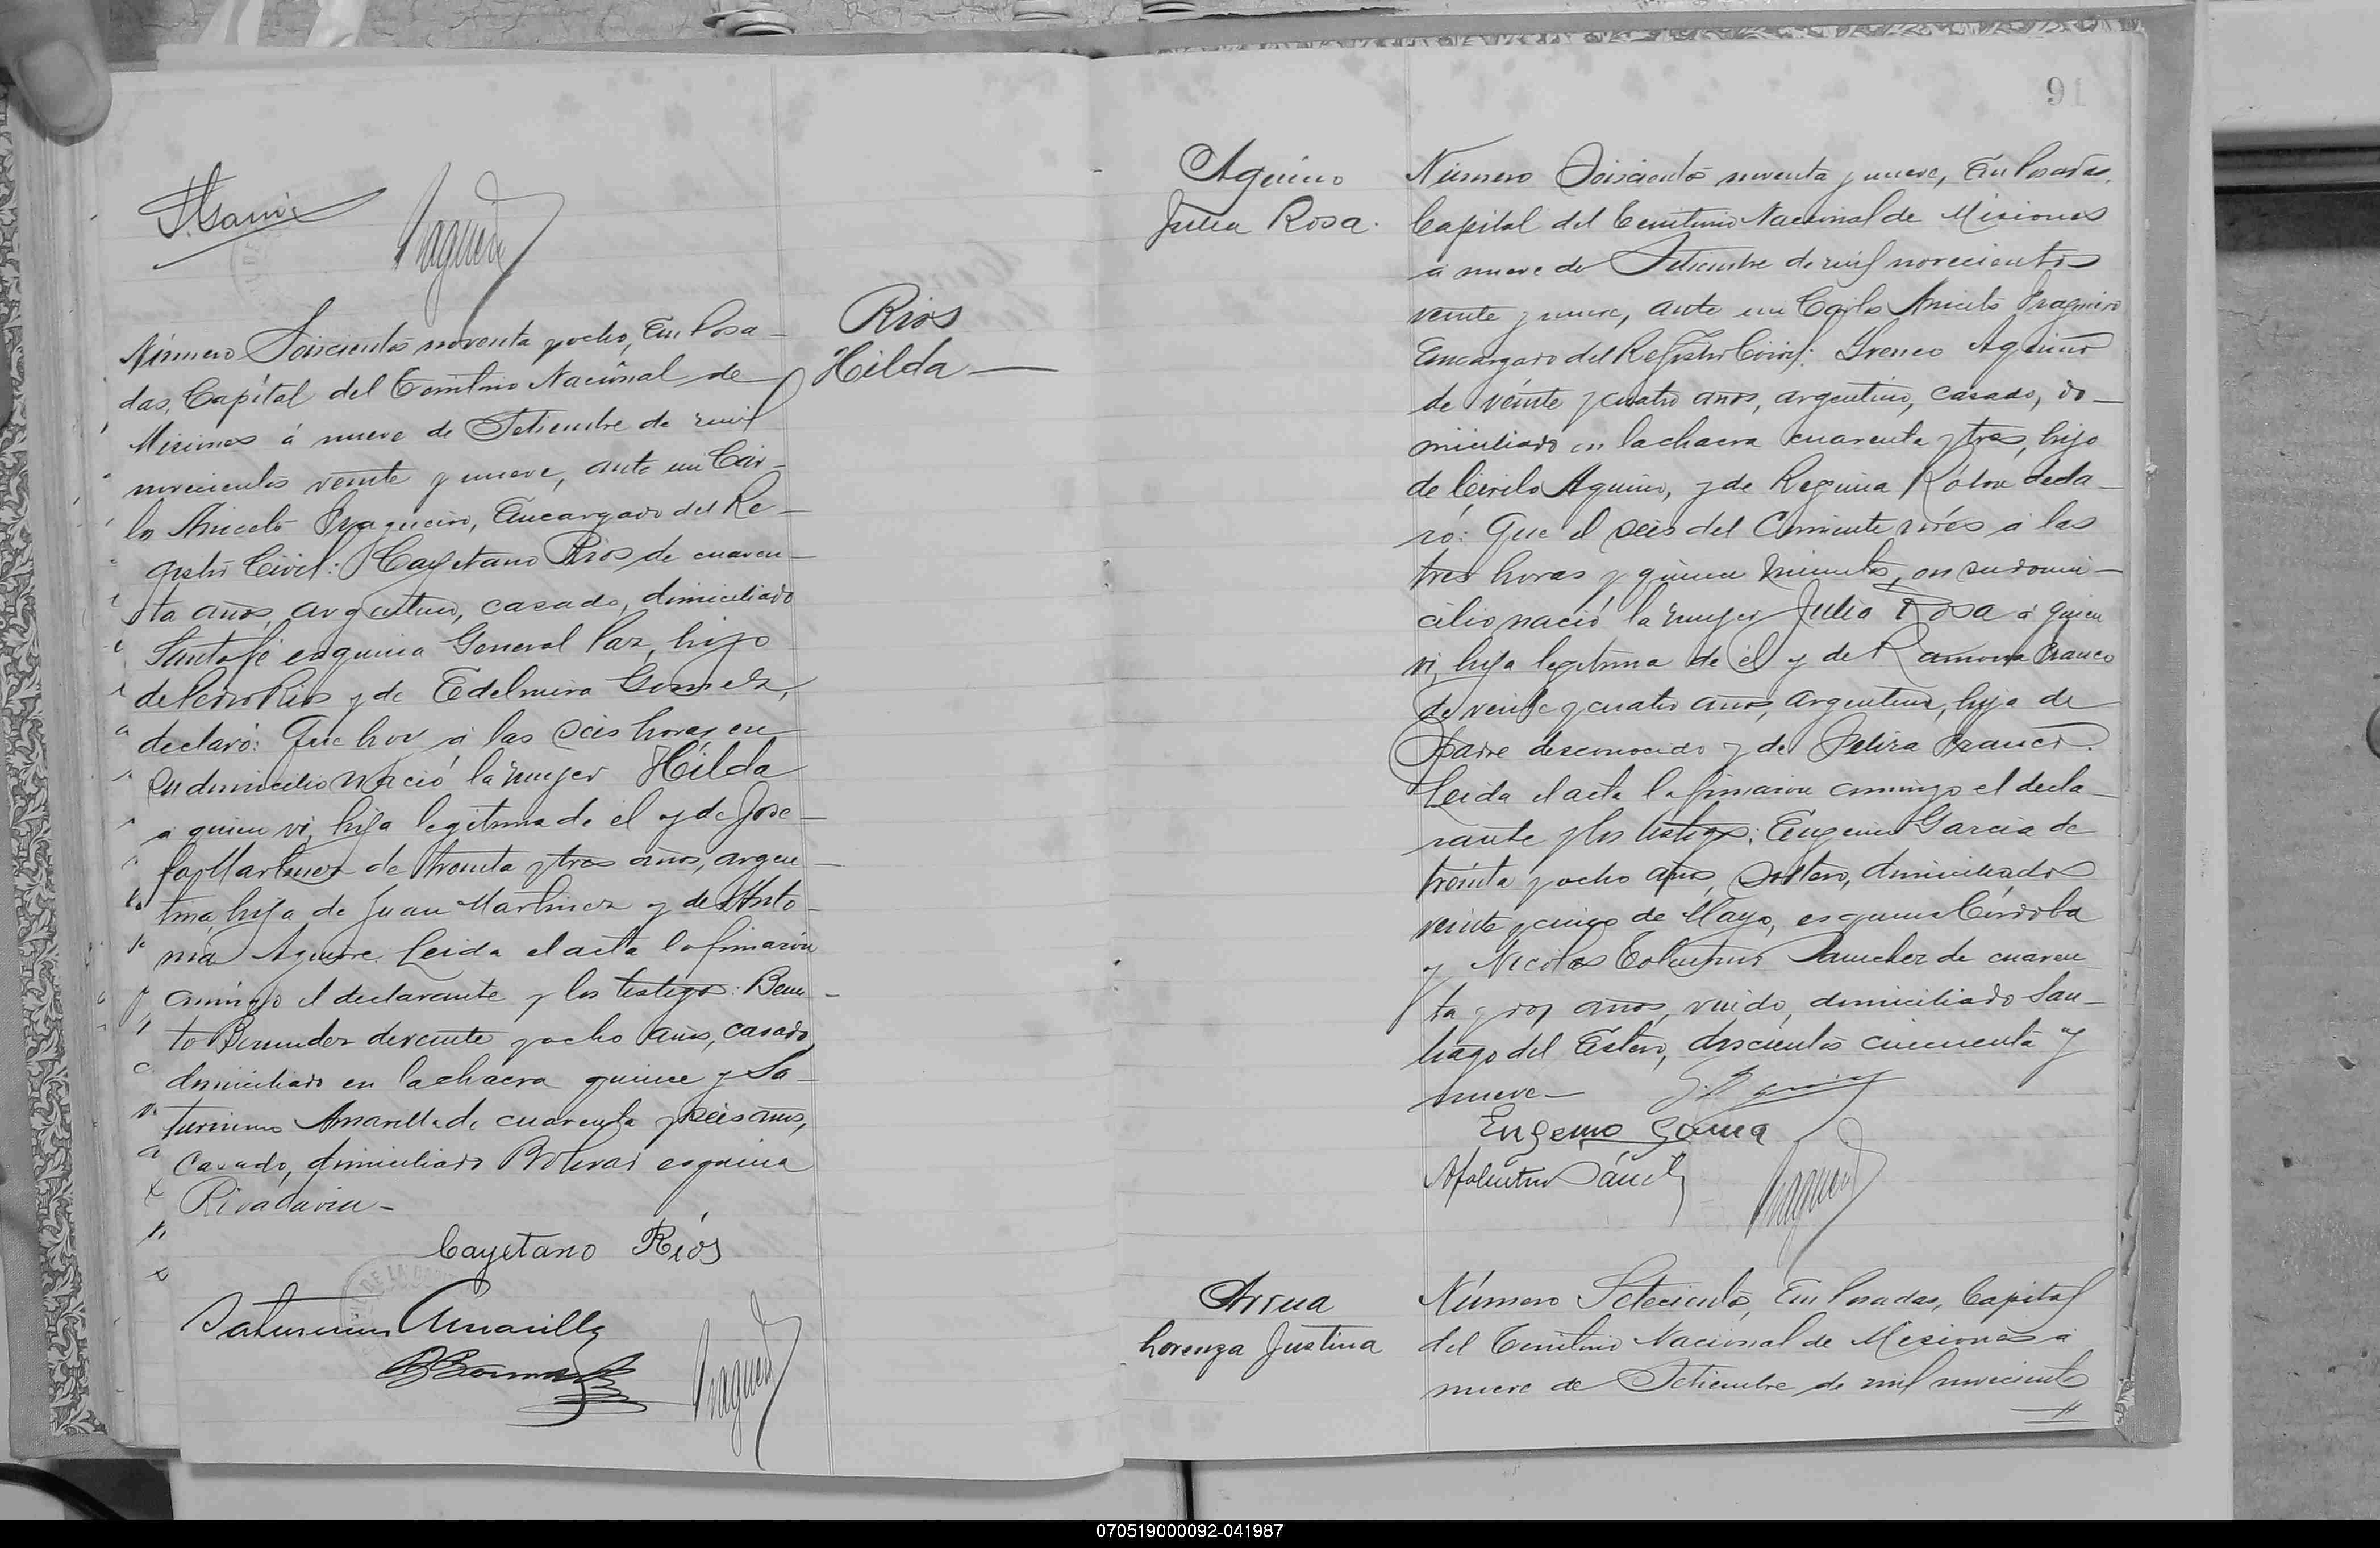 Rios
Hilda
Número Seiscientos noventa y ocho, En Posa-
das, Capítal del Territorio Nacional de
Misiones á nueve de Setiembre de mil
novecientos veinte y nueve, ante mi Car-
los Aniceto Fragueiro, Encargado del Re-
gistro Civil: Cayetano Rios de cuaren-
ta años, argentino, casado, domiciliado
Santa fé esquina General Paz, hijo
de Pedro Rios y de Edelmira Gomez,
declaró: Que hoy á las seis horas en
su domicilio nació la mujer Hilda
a quien vi, hija legitima de él y de Jose-
fa Martinez de treinta y tres años, argen-
tina, hija de Juan Martinez y de Anto-
nia Aguirre. Leida el acta la firmaron
conmigo el declarante y los testigos: Beni-
to Bermudez de veinte y ocho años, casado,
domiciliado en la chacra quince y Sa-
turnino Amarilla de cuarenta y seis años,
casado, domiciliado Bolivar esquina
Rivadavia-
Cayetano Ríos
Saturnino Amarilla
91
Aquino
Julia Rosa.
Número Seiscientos noventa y nueve, En Posadas,
Capital del Territorio Nacional de Misiones
á nueve de Setiembre de mil novecientos
veinte y nueve, ante mi Carlos Aniceto Fragueiro
Encargado del Registro Civil: Ireneo Aquino
de veinte y cuatro años, argentino, casado, do-
miciliado en la chacra cuarenta y tres, hijo
de Cirilo Aquino, y de Regina decla-
ró: Que el seis del corriente mes á las
tres horas y quince minutos, en su domi-
cilio nació la mujer Julia Rosa á quien
vi, hija legitima de él y de Ramona Franco
de veinte y cuatro años, argentina, hija de
Padre desconocido y de Franco.
Leida el acta la firmaron conmigo el decla-
rante y los testigos: Eugenio Garcia de
treinta y ocho años, soltero, domiciliado
veinte y cinco de Mayo, esquina Córdoba
y Nicolas Tolentino Sanchez de cuaren-
ta y dos años, viudo, domiciliado San-
tiago del Estero, doscientos cincuenta y
nueve-
Eugenio Garcia
Arrua
Lorenza Justina
Número Setecientos, En Posadas, Capital
del Territorio Nacional de Misiones á
nueve de Setiembre de mil novecientos
070519000092-041987